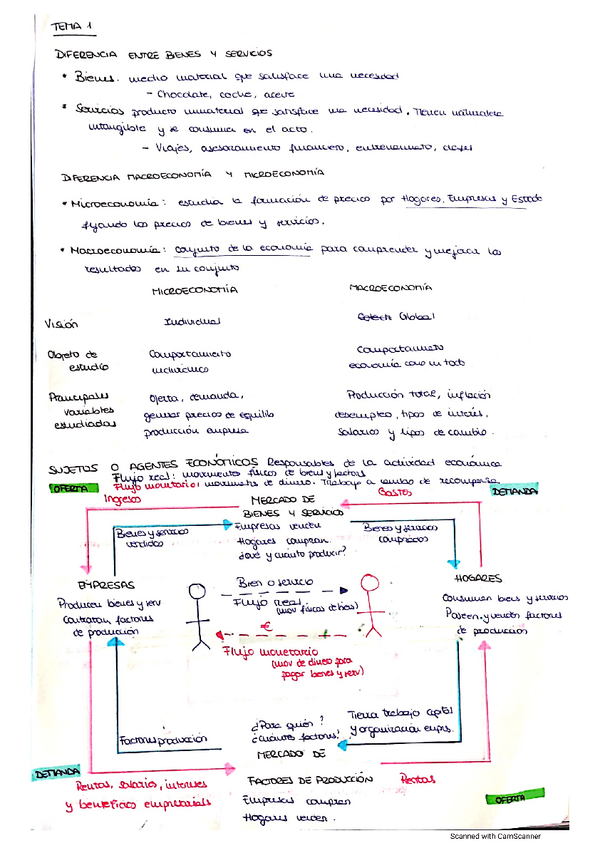 TEMA 1
DIFERENCIA ENTRE BIENES Y SERVICIOS
• Bienes: medio material que satisface una necesidad
- Chocolate, coche, aceite
• Servicios producto inmaterial que satisface una necesidad. Tienen naturaleza
intangible y se consumen en el acto.
- Viajes, asesoramiento financiero, entrenamiento, clases
DIFERENCIA MACROECONOMÍA Y MICROECONOMÍA
• Microeconomía: estudia la formación de precios por Hogares, Empresas y Estado
fijando los precios de bienes y servicios.
• Macroeconomía: conjunto de la economía para comprender y mejorar los
resultados en su conjunto
MICROECONOMÍA MACROECONOMÍA
Visión Individual Global
Objeto de Comportamiento Comportamiento
estudio individuo economía como un todo
Principales Oferta, demanda, Producción total, inflación
variables generar precios de equilib desempleo, tipos de interés,
estudiadas producción empresa salarios y tipos de cambio.
SUJETOS O AGENTES ECONÓMICOS Responsables de la actividad económica
Flujo real: movimientos físicos de bienes y factores
OFERTA Flujo monetario: movimientos de dinero. Trabajo a cambio de recompensa
Ingresos MERCADO DE Gastos DEMANDA
BIENES Y SERVICIO
Bienes y servicios Empresas venden Bienes y servicios
vendidos Hogares compran comprados
¿Qué y cuánto producir?
EMPRESAS HOGARES
Bien o servicio
Producen bienes y serv Flujo Real Consumen bienes y servicios
Contratan factores (mov físicos de bios) Poseen y venden factores
de producción € de producción
Flujo monetario
(mov de dinero para
pagar bienes y serv)
¿Para quién? Tierra trabajo capital
Factores producción ¿Cuántos factores? y organización empres.
MERCADO DE
DEMANDA FACTORES DE PRODUCCIÓN Rentas
Rentas, salarios, intereses Empresas compran
y beneficios empresariales Hogares venden. OFERTA
Scanned with CamScanner